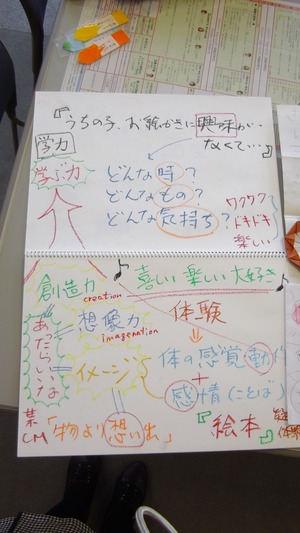 『うちの子、お絵かきに興味が…
なくて…』
学力
学ぶ力
どんな時？
どんなもの？
どんな気持ち？
ワクワク
ドキドキ
楽しい
創造力
creation
♪喜しい楽しい大好き♪
あたらしいな
想像力
imagenation
体験
⇓
イメージ
体の感覚動作
+
感情(ことば)
『絵本』
CM「物より想い出」